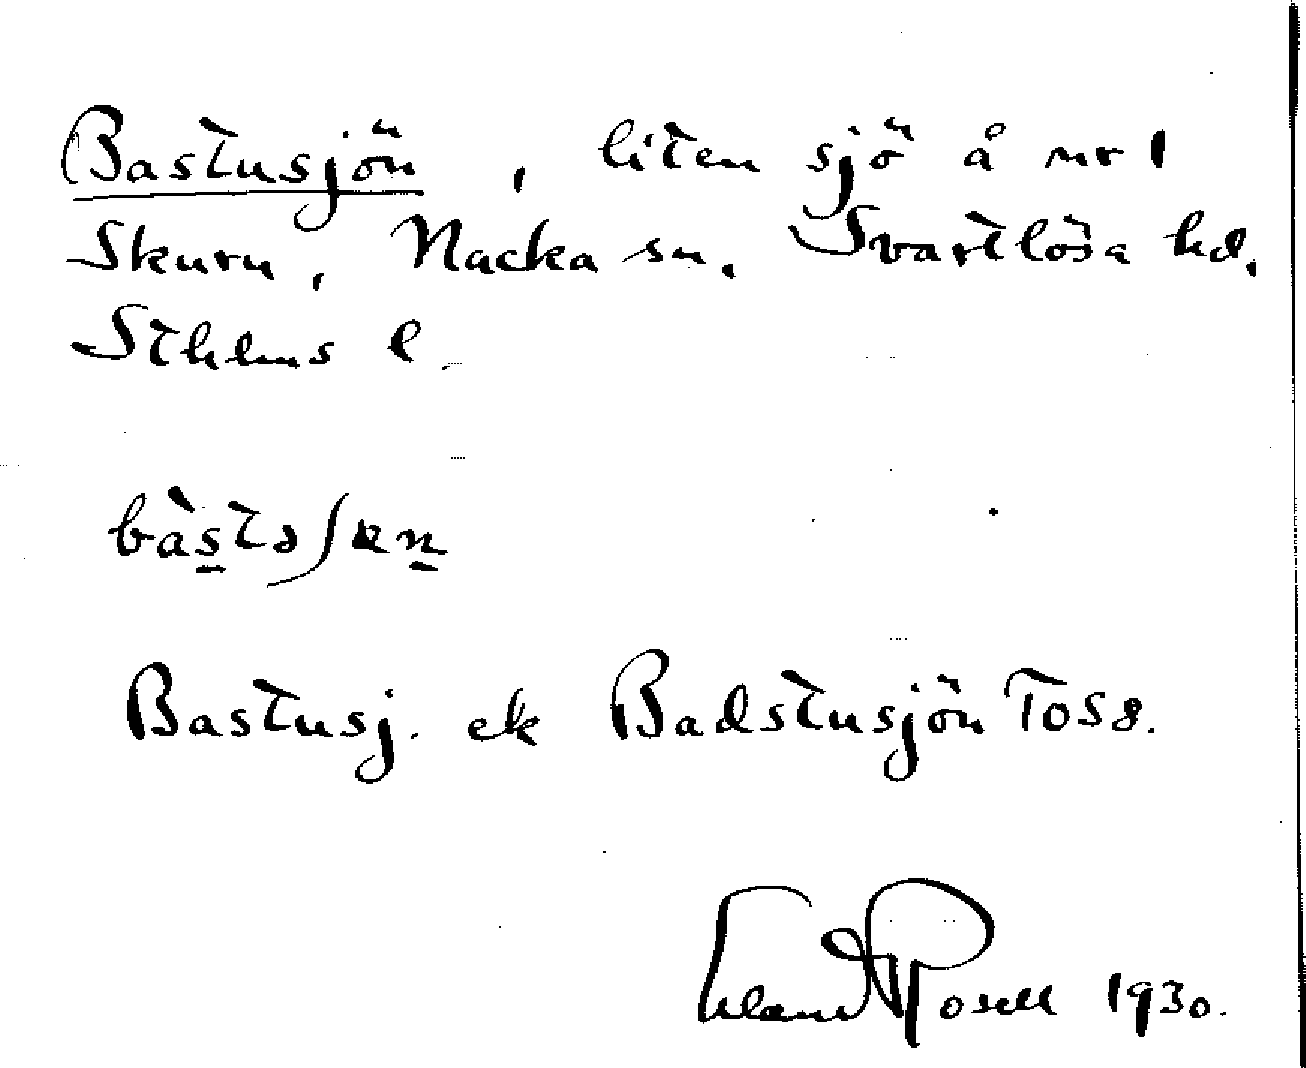 Bastusjön, liten sjö å nr 1
Skuru, Nacka sn. Svartlösa hd.
Sthlms l.
Bastusj. ek Badstusjön
Rosell 1930.